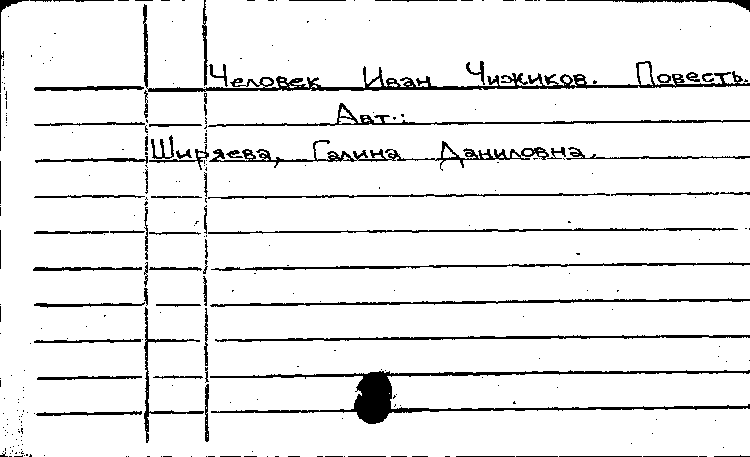 Человек Иван Чижиков. Повесть.
Авт.:
Ширяева, Галина Даниловна.